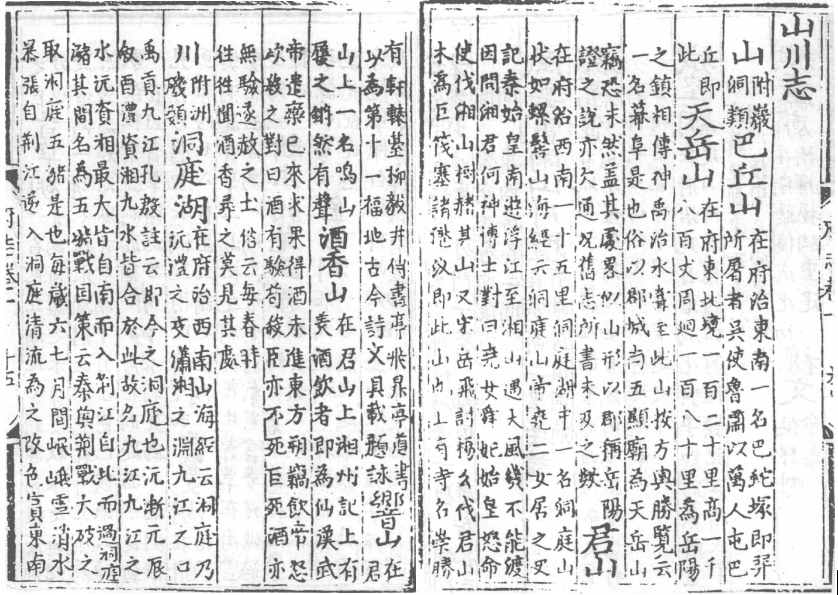 山川志
山附巖巴丘山在府治東南一名巴蛇塚即羿
洞類所屠者吳使魯肅以萬人屯巴
丘即天岳山在府東北境一百二十里高一千
此八百丈周迴一百八十里為岳陽
之鎮相傳神禹治水嘗至此山按方輿勝覽云
一名幕阜是也俗以郡城為五顯廟為天岳山
竊恐未然盖其處畧似山形以郡稱岳陽君山
證之說亦欠通况舊志所書未及之歟
在府治西南一十五里洞庭湖中一名洞庭山
狀如螺髻山海經云洞庭山帝堯二女居之史
記秦始皇南遊浮江至湘山遇大風幾不能渡
因問湘君何神博士對曰堯女舜妃始皇怒命
使伐湘山樹赭其山又宋岳飛討楊幺伐君山
木為巨筏塞諸港汊即此山也上有寺名崇勝
有軒轅臺柳毅井傳書亭飛昇亭道書響山在
以為第十一福地古今詩文具載題詠君
山上一名鳴山酒香山在君山上湘州記上有
履之鏘然有聲美酒飲者即為仙漢武
帝遣欒巴來求果得酒未進東方朔竊飲帝怒
欲殺之對曰酒有驗苟殺臣亦不死臣死酒亦
無驗遂赦之土俗云每春時
往往聞酒香尋之莫見其處
川附洲洞庭湖在府治西南山海經云洞庭乃
磯類沅澧之交瀟湘之淵九江之口
禹貢九江孔殷註云即今之洞庭也沅漸元辰
敘酉澧資湘九水皆合於此故名九江九江之
水沅資湘最大皆自南而入荊江自北而過洞庭
瀦其間名為五瀦戰國策云秦與荊戰大破之
取洞庭五瀦是也每歲六七月間岷峨雪消水
暴張自荊江逆入洞庭清流為之改色寔東南
府志卷一
十五